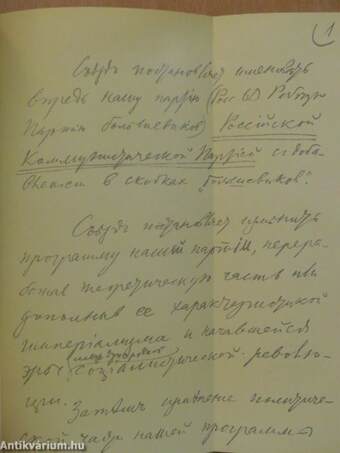 1
Съездъ постановляет именовать
впредь нашу партію (Росс. С.Д. Рабочую
Партію большевиков) Россійской
Коммунистической Партіей с доба-
влением в скобках „большевиков".
Съездъ постановляет изменить
программу нашей партіи, перера-
ботав теоретическую часть или
дополнив ее характеристикой
имперіализма и начавшейся
международной
эры социалистической револю-
ции.
Затем изменение политиче-
ской части нашей программы
Antikvárium.hu